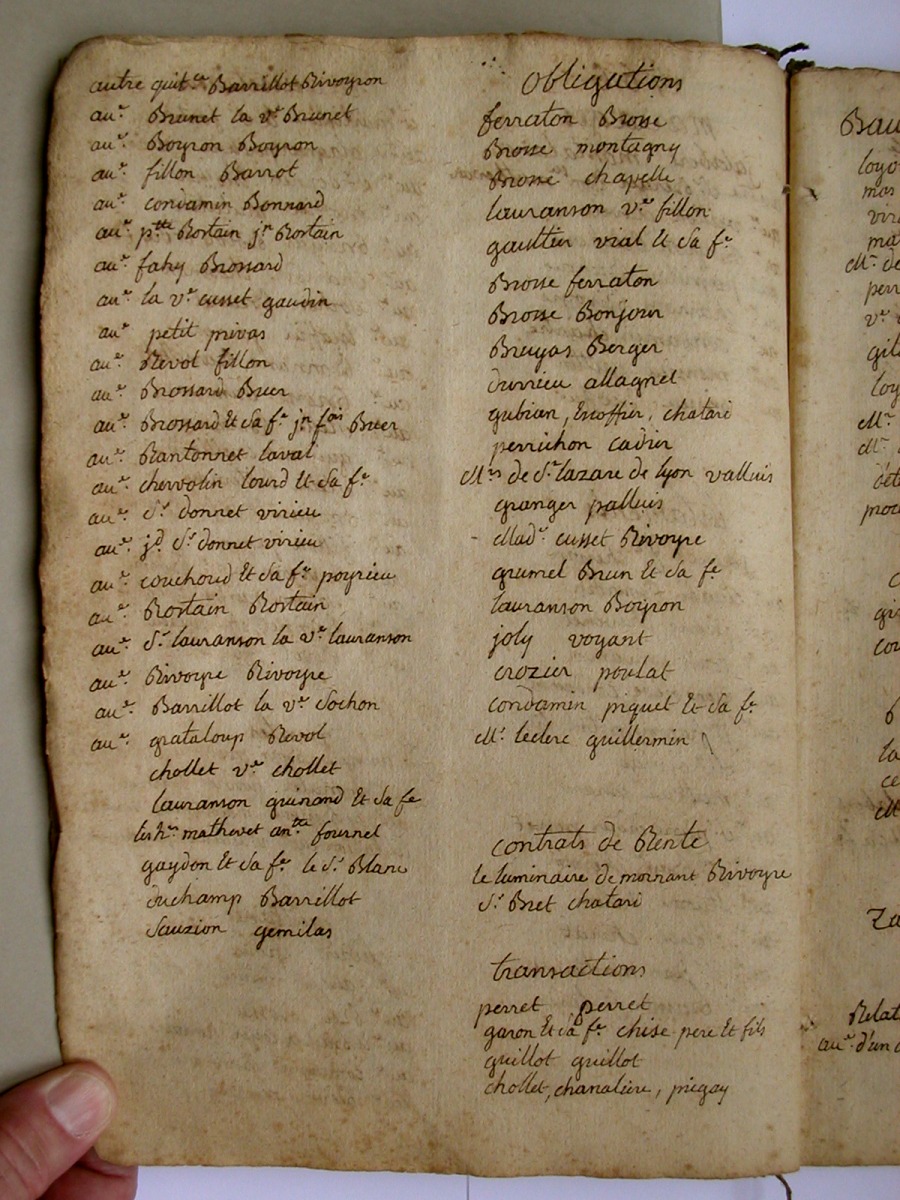 autre quit.ce Barrillot Rivoyron
au.e Brunet la v.e Brunet
au.e Boyron Boyron
au.e fillon Barrot
au.e condamin Bonnard
au.e p.tte Rostain j.n Rostain
au.e fahy Brossard
au.e la v.e cusset gaudin
au.e petit privas
au.e Revol fillon
au.e Brossard Buer
au.e Brossard Et Sa f.e j.n fois Buer
au.e Rantonnet laval
au.e chervolin lourd Et Sa f.e
au.e S.r donnet virieu
au.e j.d S.r donnet virieu
au.e couchoud Et Sa f.e poyrieu
au.e Rostain Rostain
au.e S.r lauranson la v.e lauranson
au.e Rivoyre Rivoyre
au.e Barrillot la v.e Sochon
au.e grataloup Revol
chollet v.e chollet
lauranson guinand Et Sa fe
les h.rs mathevet an.tte fournel
gaydon Et Sa f.e le S.r Blanc
duchamp Barrillot
Sauzion gemilas
obligations
ferraton Brosse
Brosse montagny
Brosse chapelle
lauranson v.e fillon
gaultier vial Et Sa f.e
Brosse ferraton
Brosse Bonjour
Bruyas Berger
durrieu allagnet
gubian, Escoffier, chatard
perrichon cadier
M.rs de S.t lazare de lyon valluis
granger palluis
Mad.e cusset Rivoyre
grumel Brun Et Sa f.e
lauranson Boyron
joly voyant
crozier poulat
condamin piquet Et Sa f.e
M.r leclerc guillermin
contrats de Rente
le luminaire de mornant Rivoyre
S.r Bret chatard
transactions
perret perret
garon Et Sa f.e chise pere Et fils
guillot guillot
chollet, chanaliere, pregay